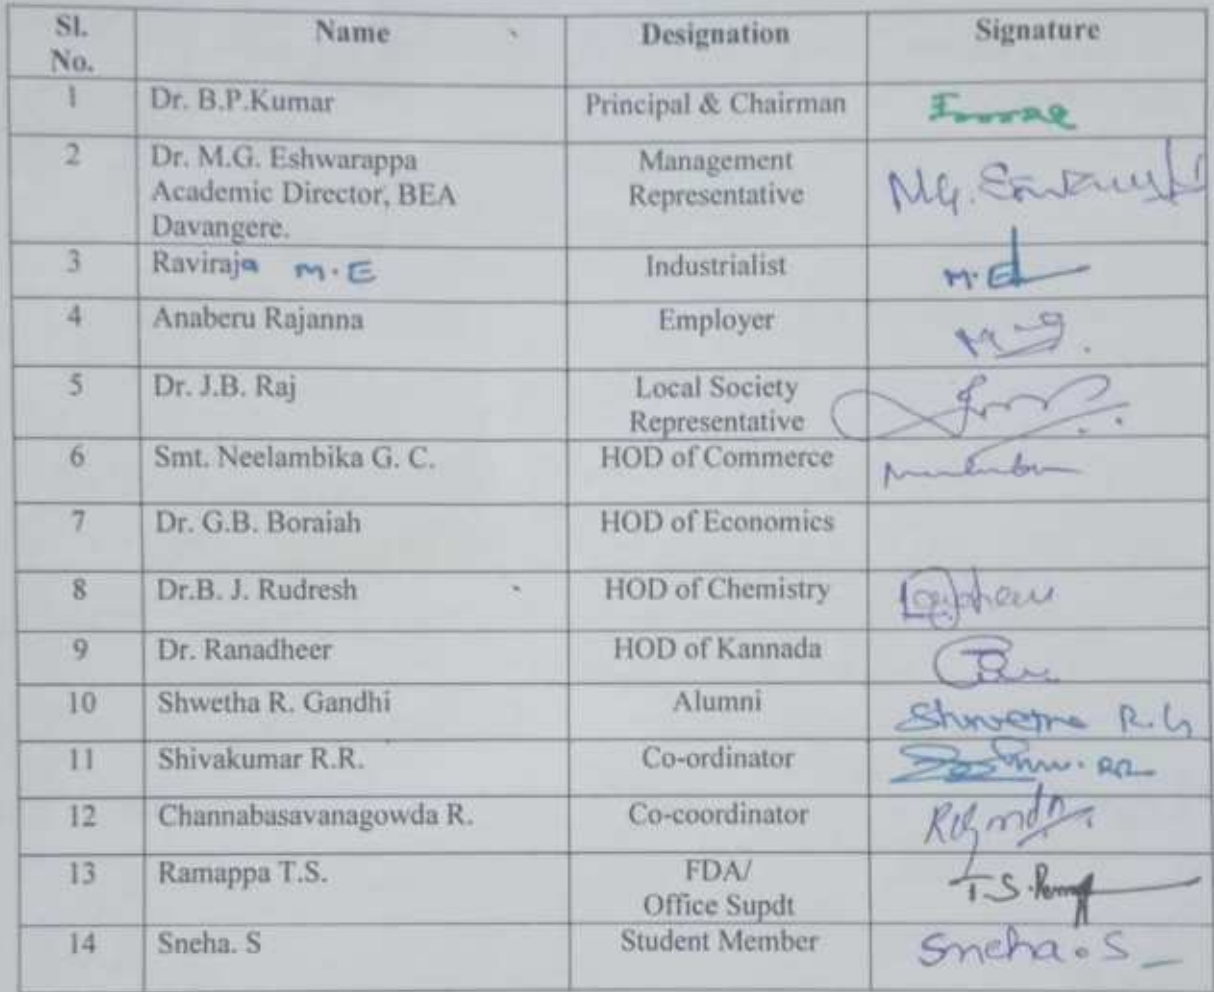 Sl. No. Name Designation Signature
1 Dr. B.P.Kumar Principal & Chairman
2 Dr. M.G. Eshwarappa Management
Academic Director, BEA Representative
Davangere.
3 Raviraja M.E Industrialist M.E
4 Anaberu Rajanna Employer
5 Dr. J.B. Raj Local Society
Representative
6 Smt. Neelambika G. C. HOD of Commerce
7 Dr. G.B. Boraiah HOD of Economics
8 Dr.B. J. Rudresh HOD of Chemistry
9 Dr. Ranadheer HOD of Kannada
10 Shwetha R. Gandhi Alumni
11 Shivakumar R.R. Co-ordinator
12 Channabasavanagowda R. Co-coordinator
13 Ramappa T.S. FDA/
Office Supdt T.S.
14 Sneha. S Student Member Sneha.S